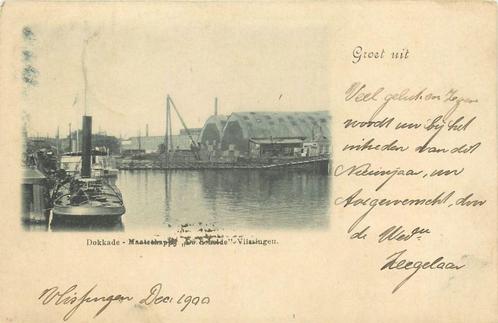 Groet uit
Veel geluk en Zegen
wordt uw bij het
intreden van dit
Nieuwjaar, uw
toegewenscht, door
de Wed.en
Zeegelaar
Dokkade - Maatschappij „De Schelde" - Vlissingen.
Vlissingen Dec 1900